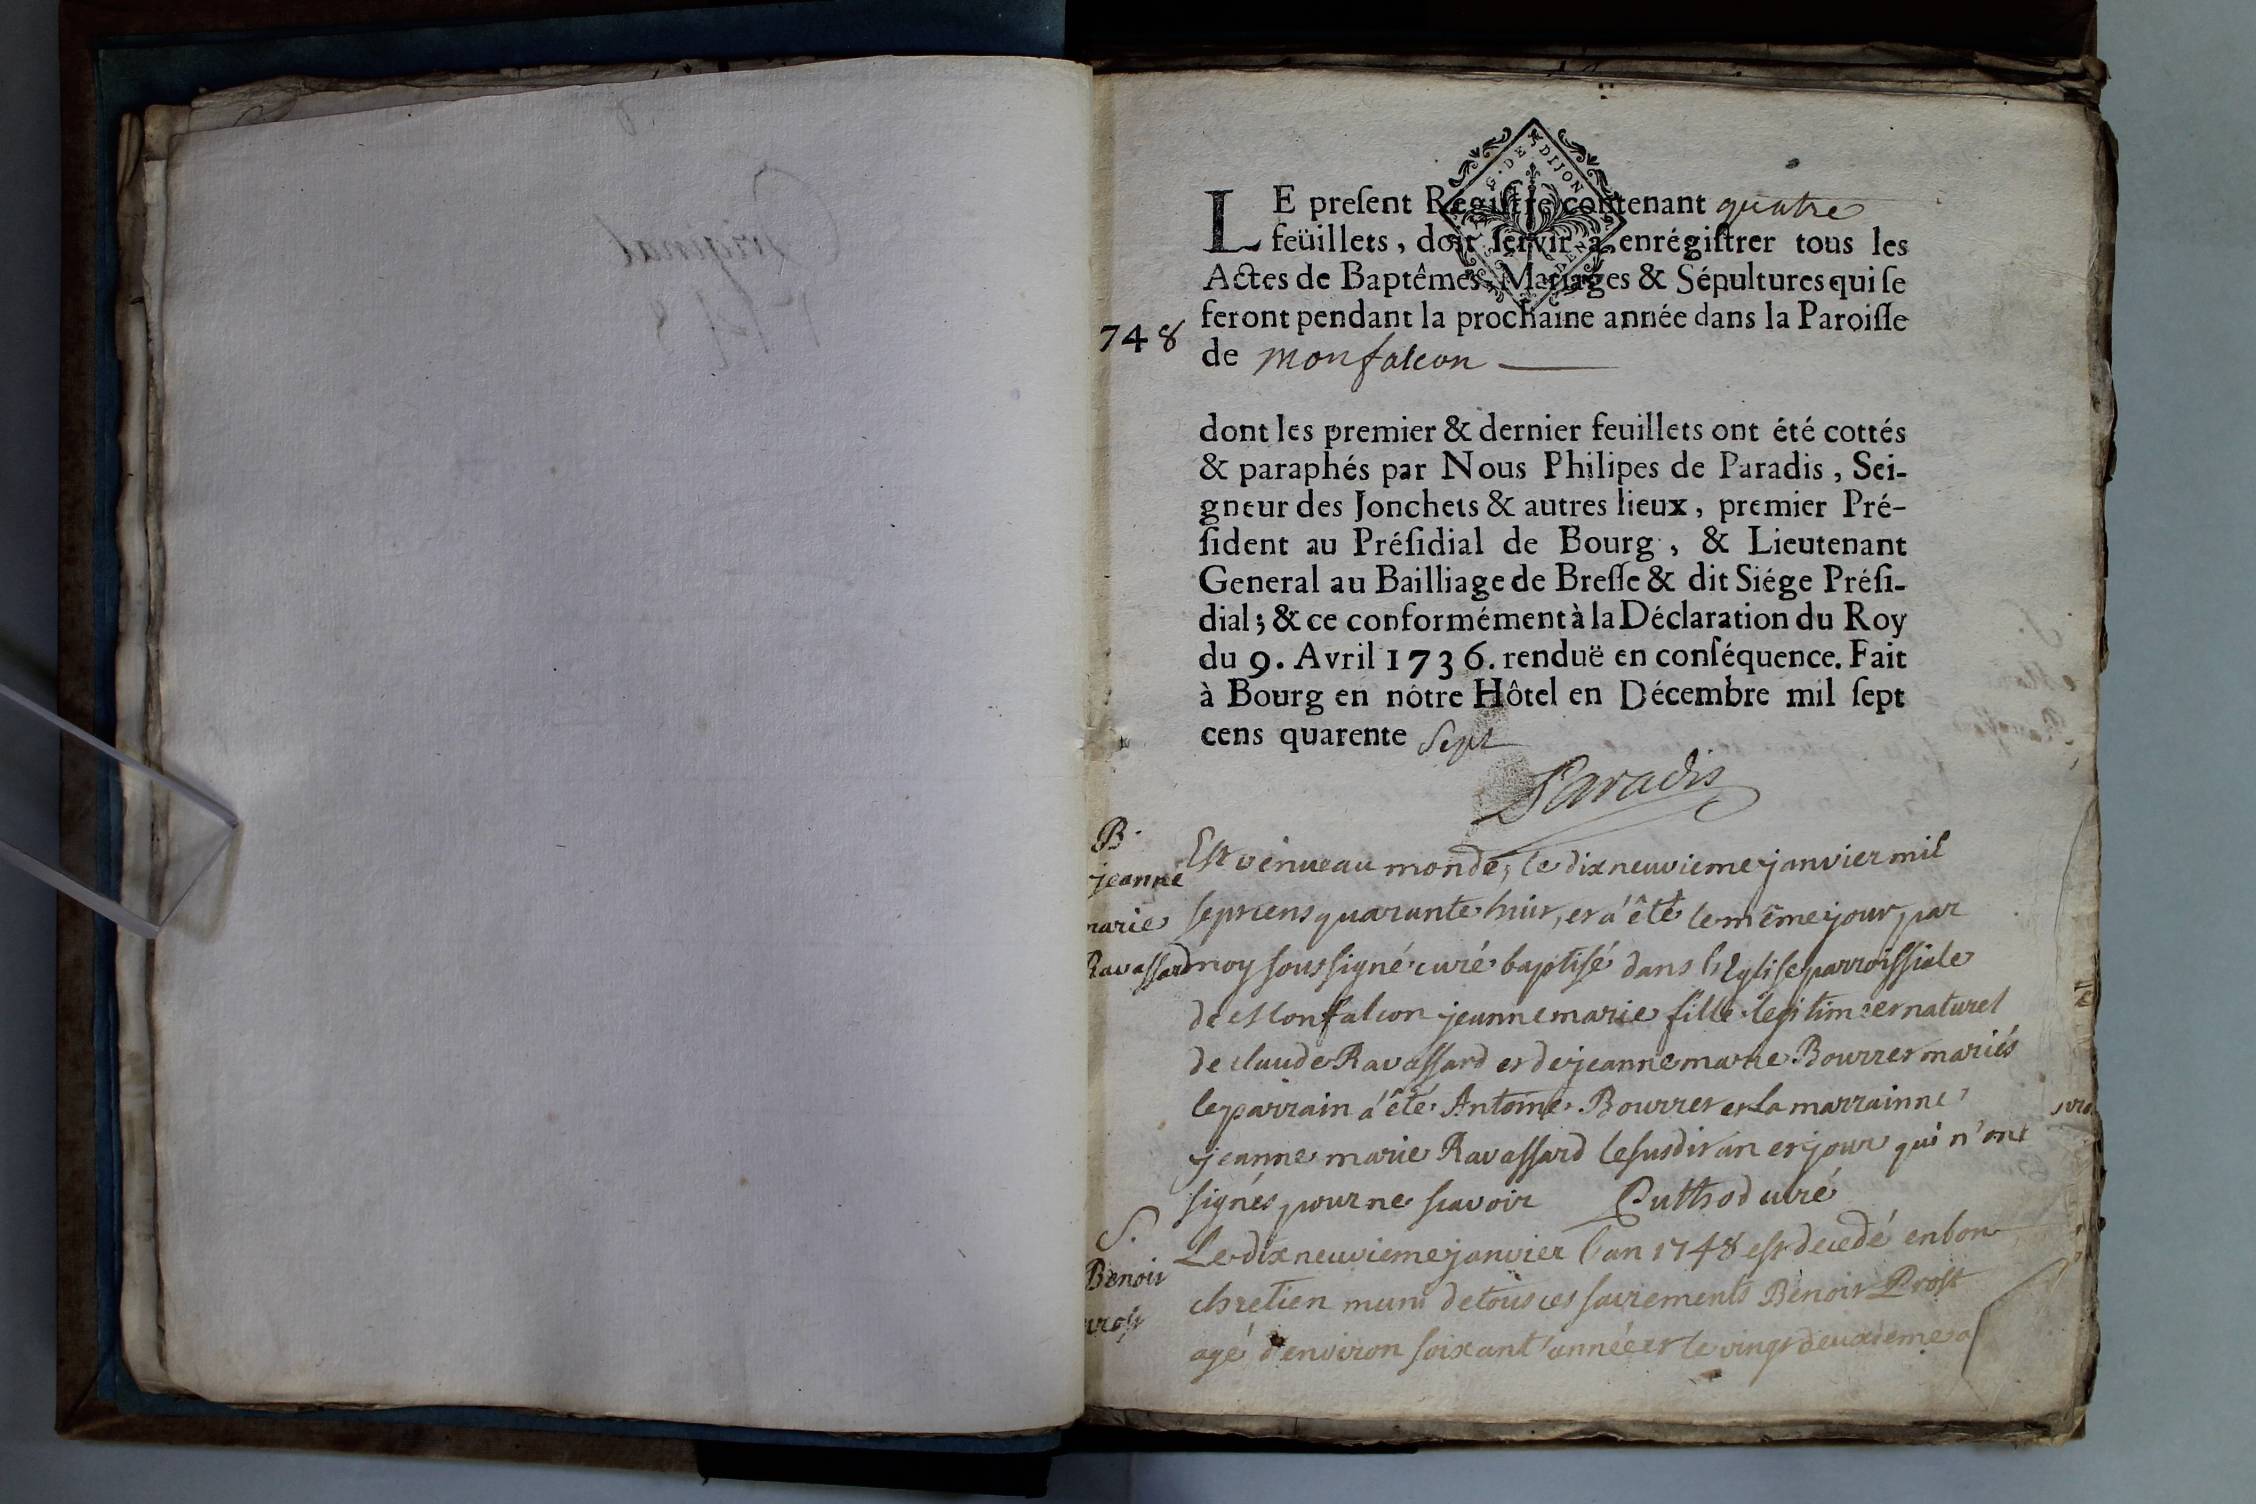 Original
1748
G. DE DIJON
LE preſent Regiſtre contenant quatre
feüillets, doit ſervir à enrégiſtrer tous les
Actes de Baptêmes, Mariages & Sépultures qui ſe
feront pendant la prochaine année dans la Paroiſſe
748
de monfalcon
dont les premier & dernier feuillets ont été cottés
& paraphés par Nous Philipes de Paradis, Sei-
gneur des Jonchets & autres lieux, premier Pré-
ſident au Préſidial de Bourg, & Lieutenant
General au Bailliage de Breſſe & dit Siége Préſi-
dial; & ce conformément à la Déclaration du Roy
du 9. Avril 1736. renduë en conſéquence. Fait
à Bourg en nôtre Hôtel en Décembre mil ſept
cens quarente Sept
Paradis
B.
jeanne
marie
Ravassard
Est venue au monde, le dix neuvieme janvier mil
sept cens quarante huit, et a êté le même jour par
moy soussigné curé baptisé dans l'Eglise parroissiale
de Monfalcon jeanne marie fille legitime et naturel
de claude Ravassard et de jeanne marie Bourret mariés
le parrain a êté Antoine Bourret et La marrainne
jeanne marie Ravassard le susdit an et jour qui n'ont
signés pour ne scavoir Puthod curé
S.
Benoit
prost
Le dix neuvieme janvier l'an 1748 est decedé en bon
chretien muni de tous ces sacrements Benoit Prost
agé d'environ soixant année et le vingt deuxieme a